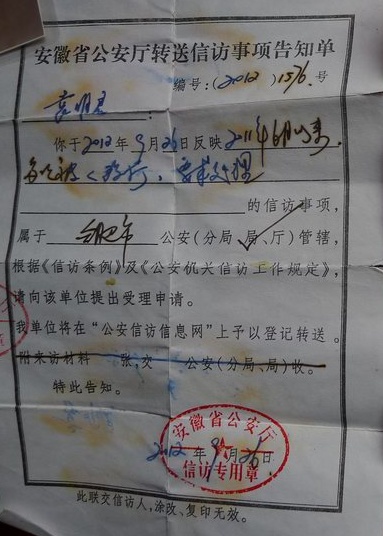 安徽省公安厅转送信访事项告知单
编号：(2012) 1576 号
你于 2012 年 9 月 26 日反映 2011年6月
的信访事项，
属于 合肥市 公安(分局、局、厅)管辖，
根据《信访条例》及《公安机关信访工作规定》，
请向该单位提出受理申请。
我单位将在“公安信访信息网”上予以登记转送。
附来访材料 张，交 公安(分局、局)收。
特此告知。
安徽省公安厅
2012 年 9 月 26 日
信访专用章
此联交信访人，涂改、复印无效。